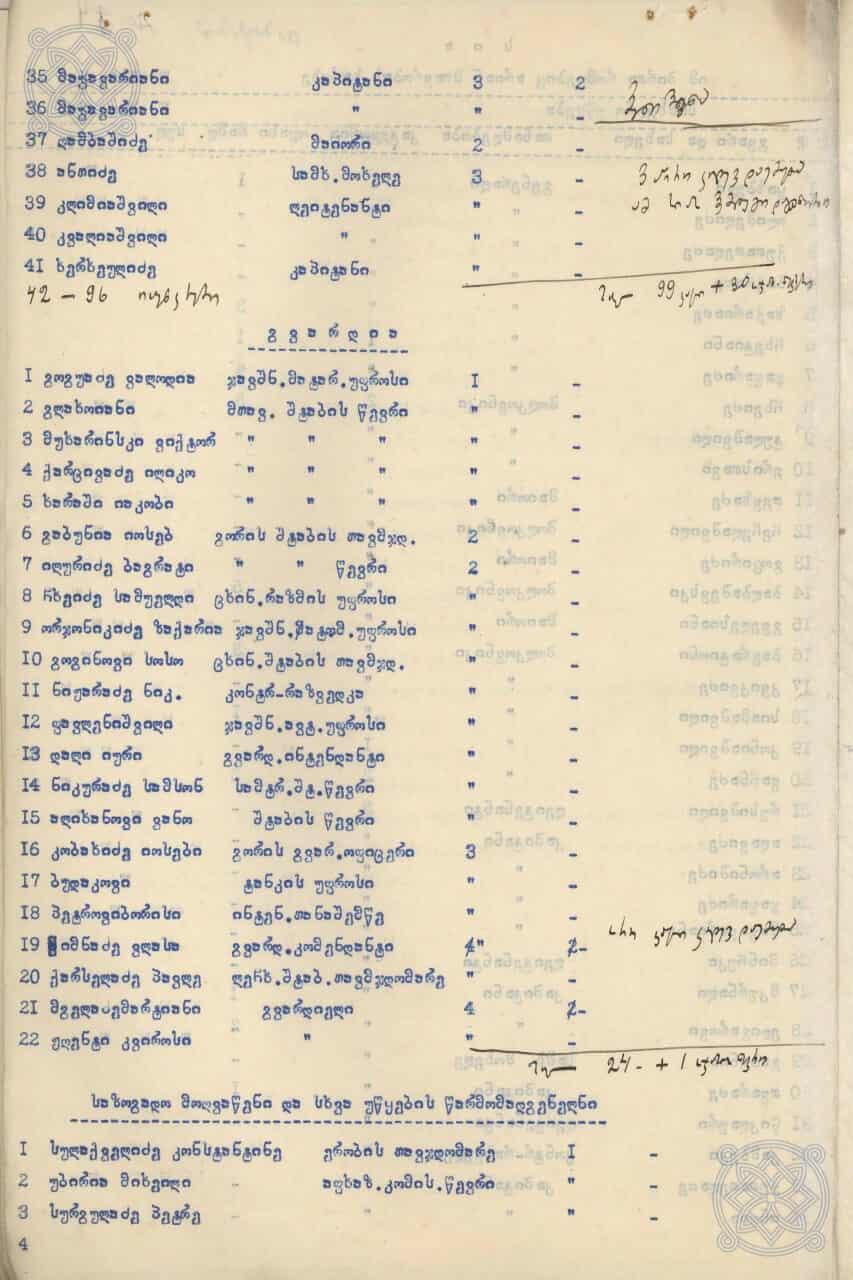 35 მაჭავარიანი კაპიტანი 3 2
36 მაჭავარიანი " " -
37 ღამბაშიძე მაიორი 2 -
38 ანთიძე სამხ.მოხელე 3 -
39 კლიმიაშვილი ლეიტენანტი " -
40 კვალიაშვილი " " -
4I ხერხეულიძე კაპიტანი " -
42 - 96
99 + 30
გ ვ ა რ დ ი ა
I გოგუაძე ვალოდია ჯავშნ.მატარ.უფროსი I -
2 გლახოიანი მთავ. შტაბის წევრი " -
3 მუხარინსკი ვიქტორ " " " " -
4 ქარცივაძე ილიკო " " " " -
5 ხარაში იაკობი " " " " -
6 გაბუნია იოსებ გორის შტაბის თავმჯდ. 2 -
7 იღურიძე ბაგრატი " " წევრი 2 -
8 ჩხეიძე სამუელდი ცხინ.რაზმის უფროსი " -
9 ორჯონიკიძე ზაქარია ჯავშნ. უფროსი " -
IO გოგინოვი სოსო ცხინ.შტაბის თავმჯდ. " -
II ნიჟარაძე ნიკ. კონტრ-რაზვედკა " -
I2 ფავლენიშვილი ჯავშნ.ავტ.უფროსი " -
I3 დალი იური გვარდ.ინტენდანტი " -
I4 ნიკურაძე სამსონ სამტრ.შტ.წევრი " -
I5 ალიხანოვი ვანო შტაბის წევრი " -
I6 კობახიძე იოსები გორის გვარ.ოფიცერი 3 -
I7 ბუდაკოვი ტანკის უფროსი " -
I8 პეტროვიბორისი ინტენ.თანაშემწე " -
I9 იმნაძე ვლასა გვარდ.კომენდანტი " -
20 ქარსელაძე პავლე ლეჩხ.შტაბ.თავმჯდომარე " -
2I მგელაძემარტიანი გვარდიელი 4 -
22 ჟღენტი კვიროსი " " -
24 - + 1
საზოგადო მოღვაწენი და სხვა უწყების წარმომადგენელნი
I სულაქველიძე კონსტანტინე ერობის თავჯდომარე I -
2 უბირია მიხეილი აფხაზ.კომის.წევრი " -
3 სურგულაძე პეტრე " " -
4